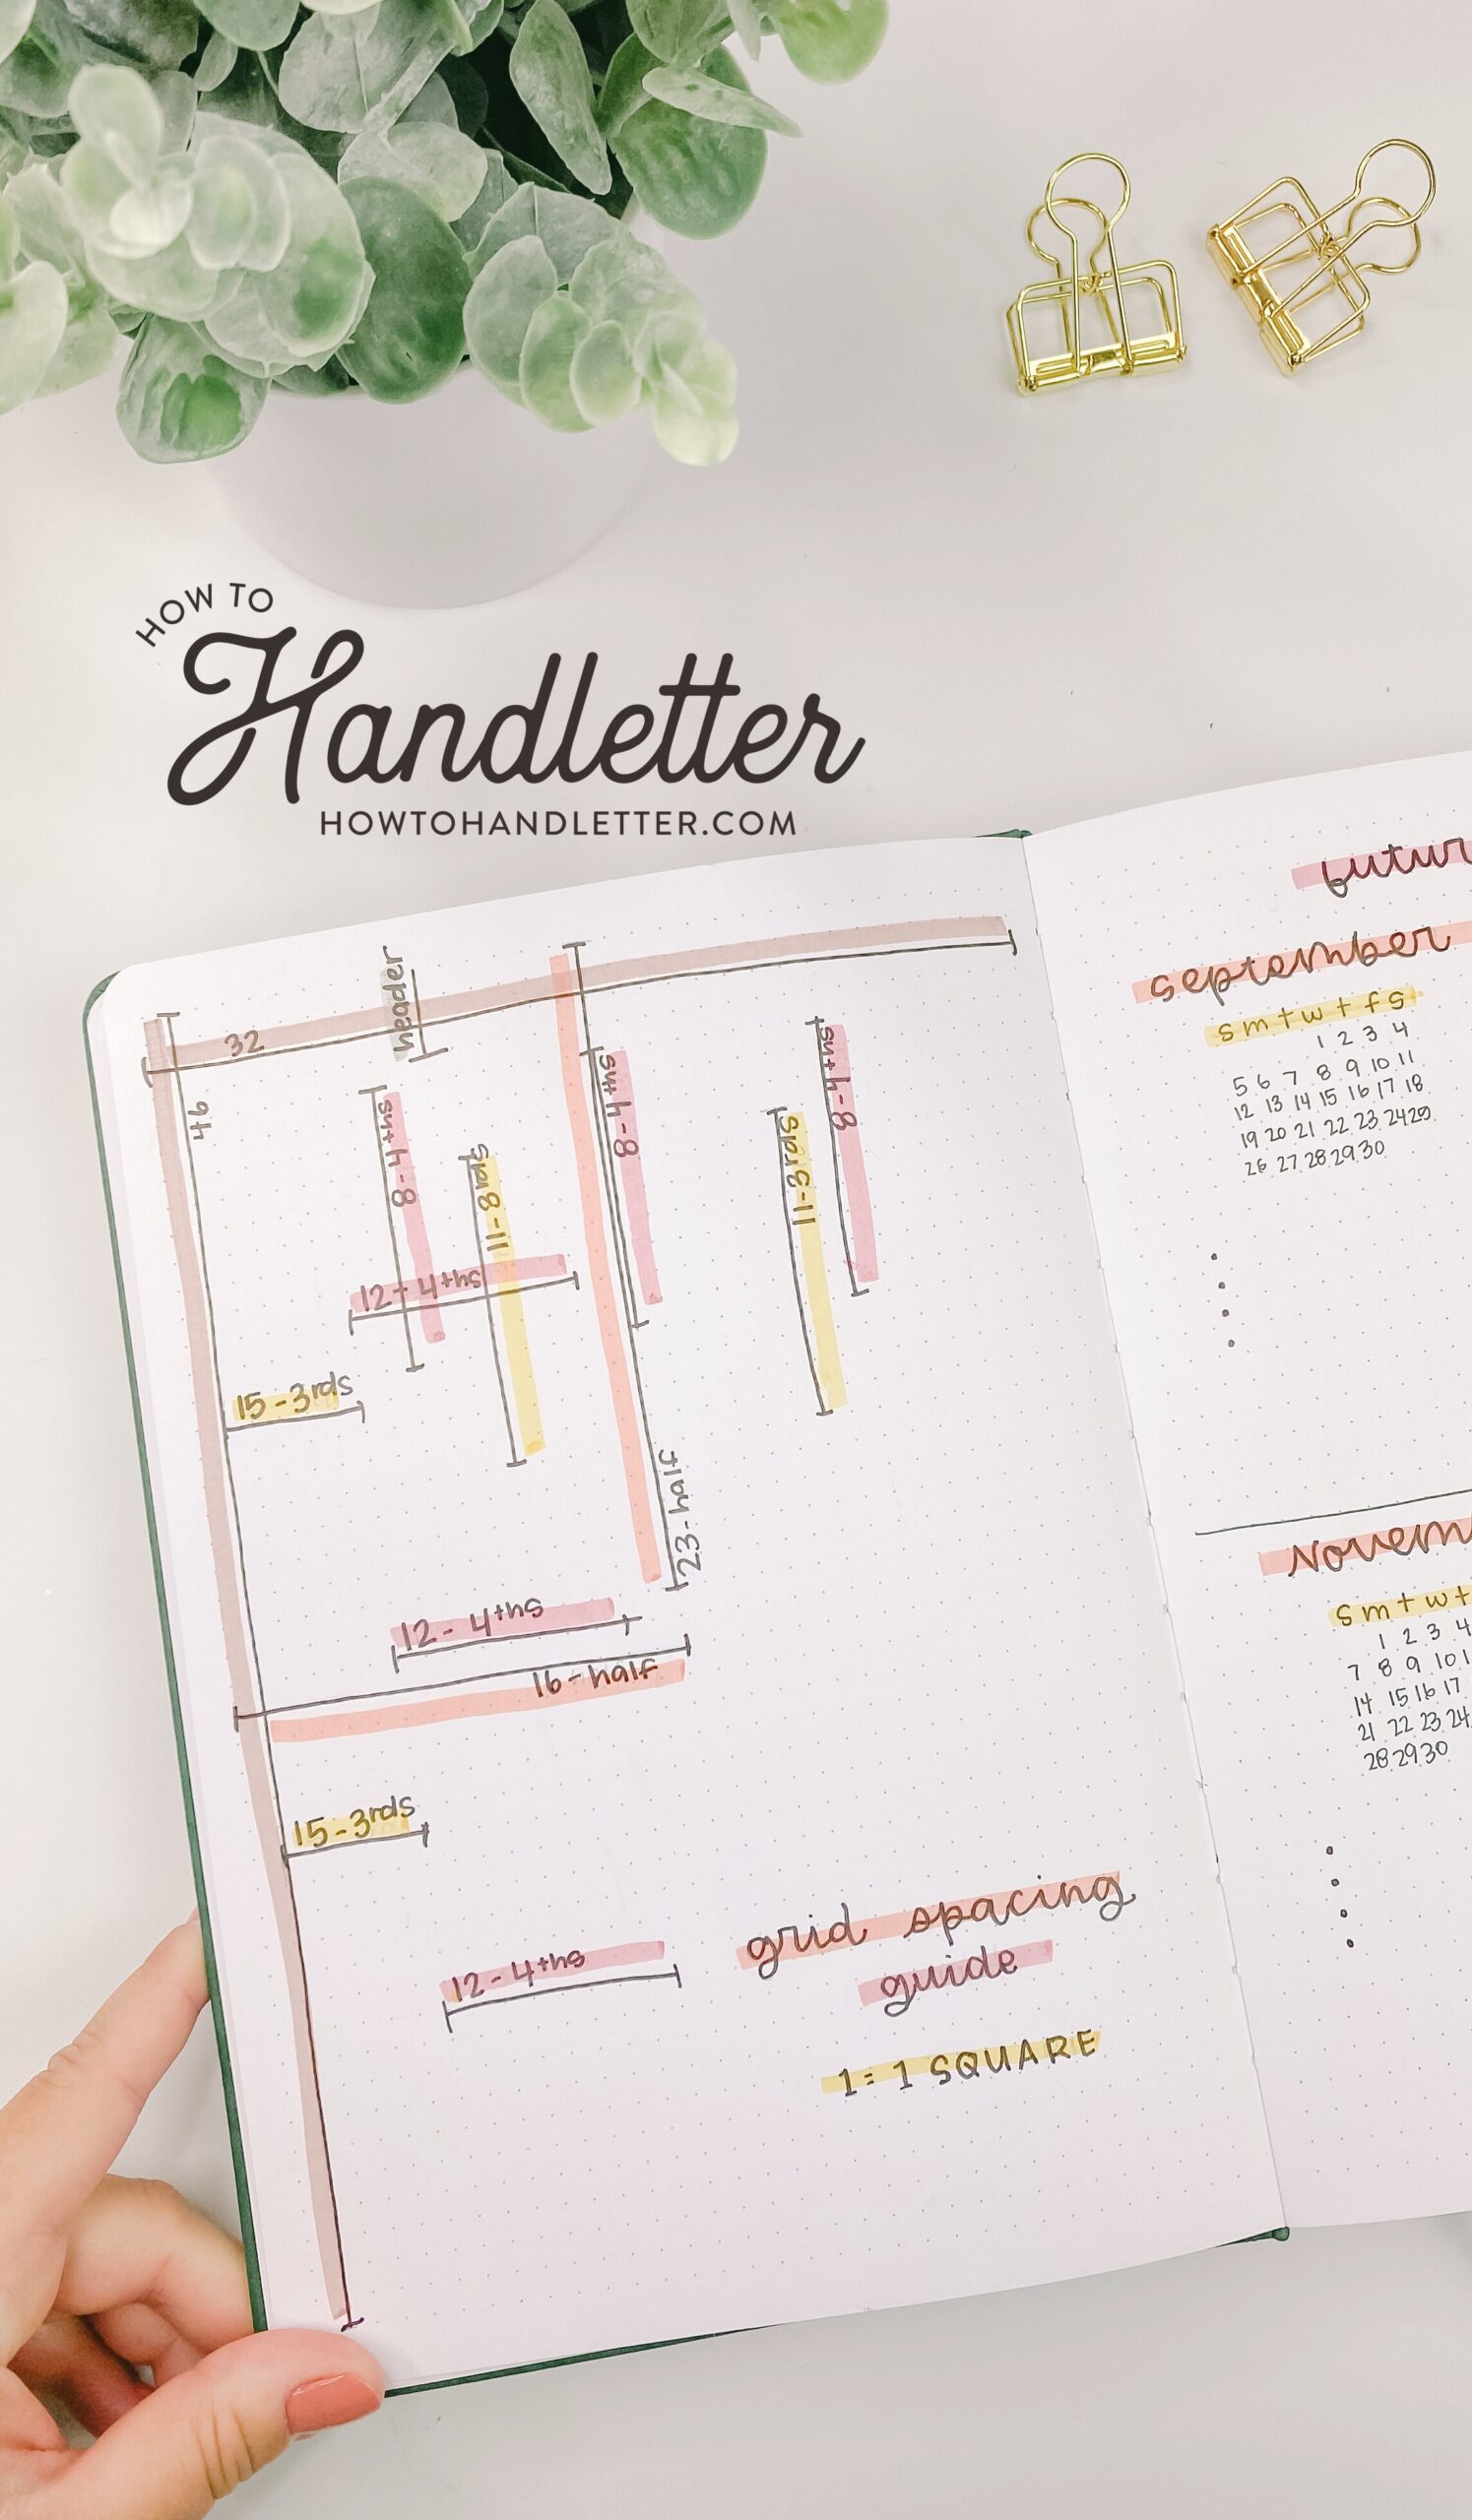 HOW TO
Handletter
HOWTOHANDLETTER.COM
32
header
46
8-4ths
11-3rds
12-4ths
15-3rds
8-4ths
11-3rds
8-4ths
23-half
12-4ths
16-half
15-3rds
12-4ths
grid spacing
guide
1 = 1 SQUARE
futur
september
s m t w t f s
1 2 3 4
5 6 7 8 9 10 11
12 13 14 15 16 17 18
19 20 21 22 23 24 25
26 27 28 29 30
Novem
s m t w t
1 2 3 4
7 8 9 10 1
14 15 16 17
21 22 23 24
28 29 30